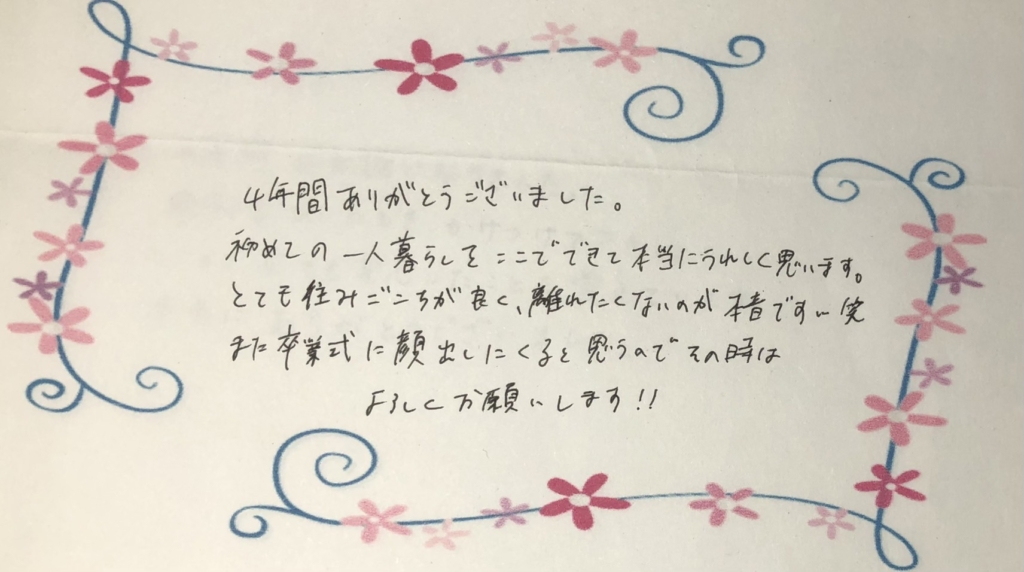 4年間ありがとうございました。
初めての一人暮らしをここでできて本当にうれしく思います。
とても住みごこちが良く、離れたくないのが本音です…笑
また卒業式に顔出しにくると思うのでその時は
よろしくお願いします!!